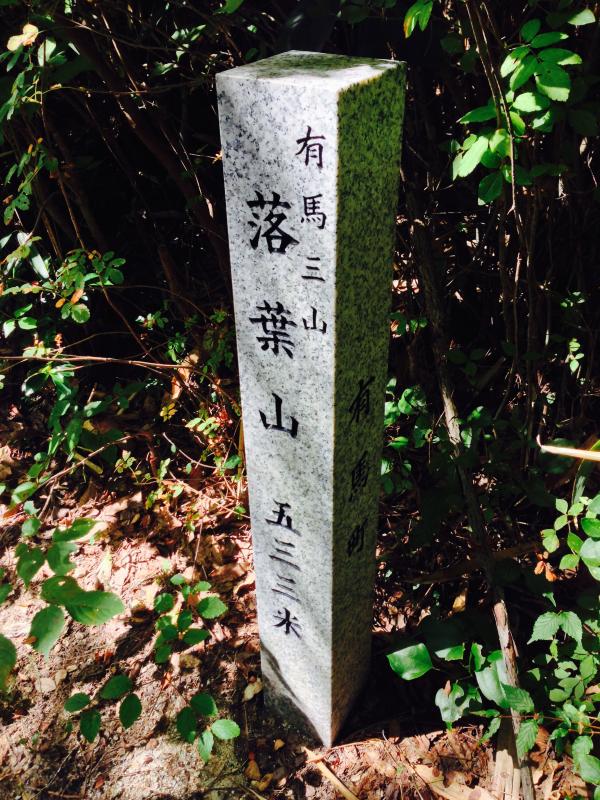 有馬三山
落葉山 五三三米
有馬町